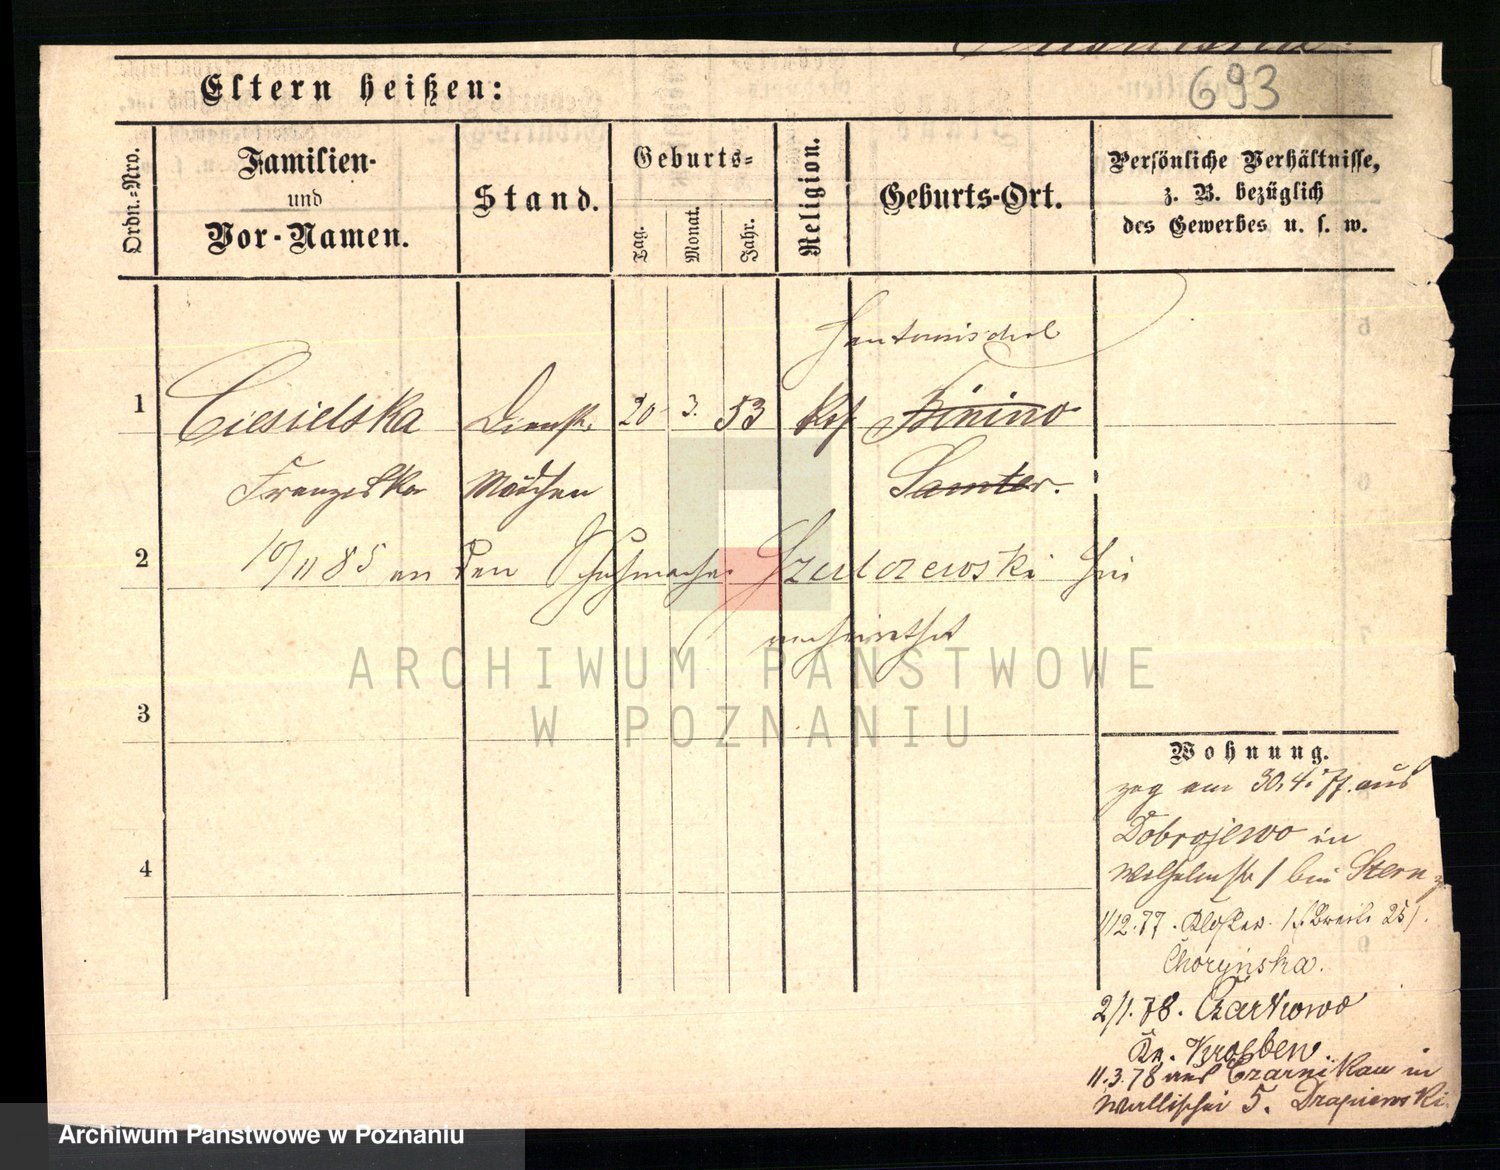 693
Eltern heißen:
Ordn.-Nro.
Familien-
und
Vor-Namen.
Stand.
Geburts-
Tag.
Monat.
Jahr.
Religion.
Geburts-Ort.
Persönliche Verhältnisse,
z. B. bezüglich
des Gewerbes u. s. w.
1 Ciesielska Dienst 20 3. 53 Kth Binino
Franziska Mädchen Samter.
2 10/11 85 an den Schuhmacher Szulczewski hier
verheirathet
3
4
Wohnung.
zog am 30.4.77. aus
Dobrojewo in
Wilhelmstr 1 bei Stern
1/12.77. Kloster. Breite 25/.
Choryńska.
2/1.78. Czarkowo
Kr. Kroeben.
11.3.78 aus Czarnikau in
Wallischei 5. Drapiewski.
ARCHIWUM PAŃSTWOWE
W POZNANIU
Archiwum Państwowe w Poznaniu